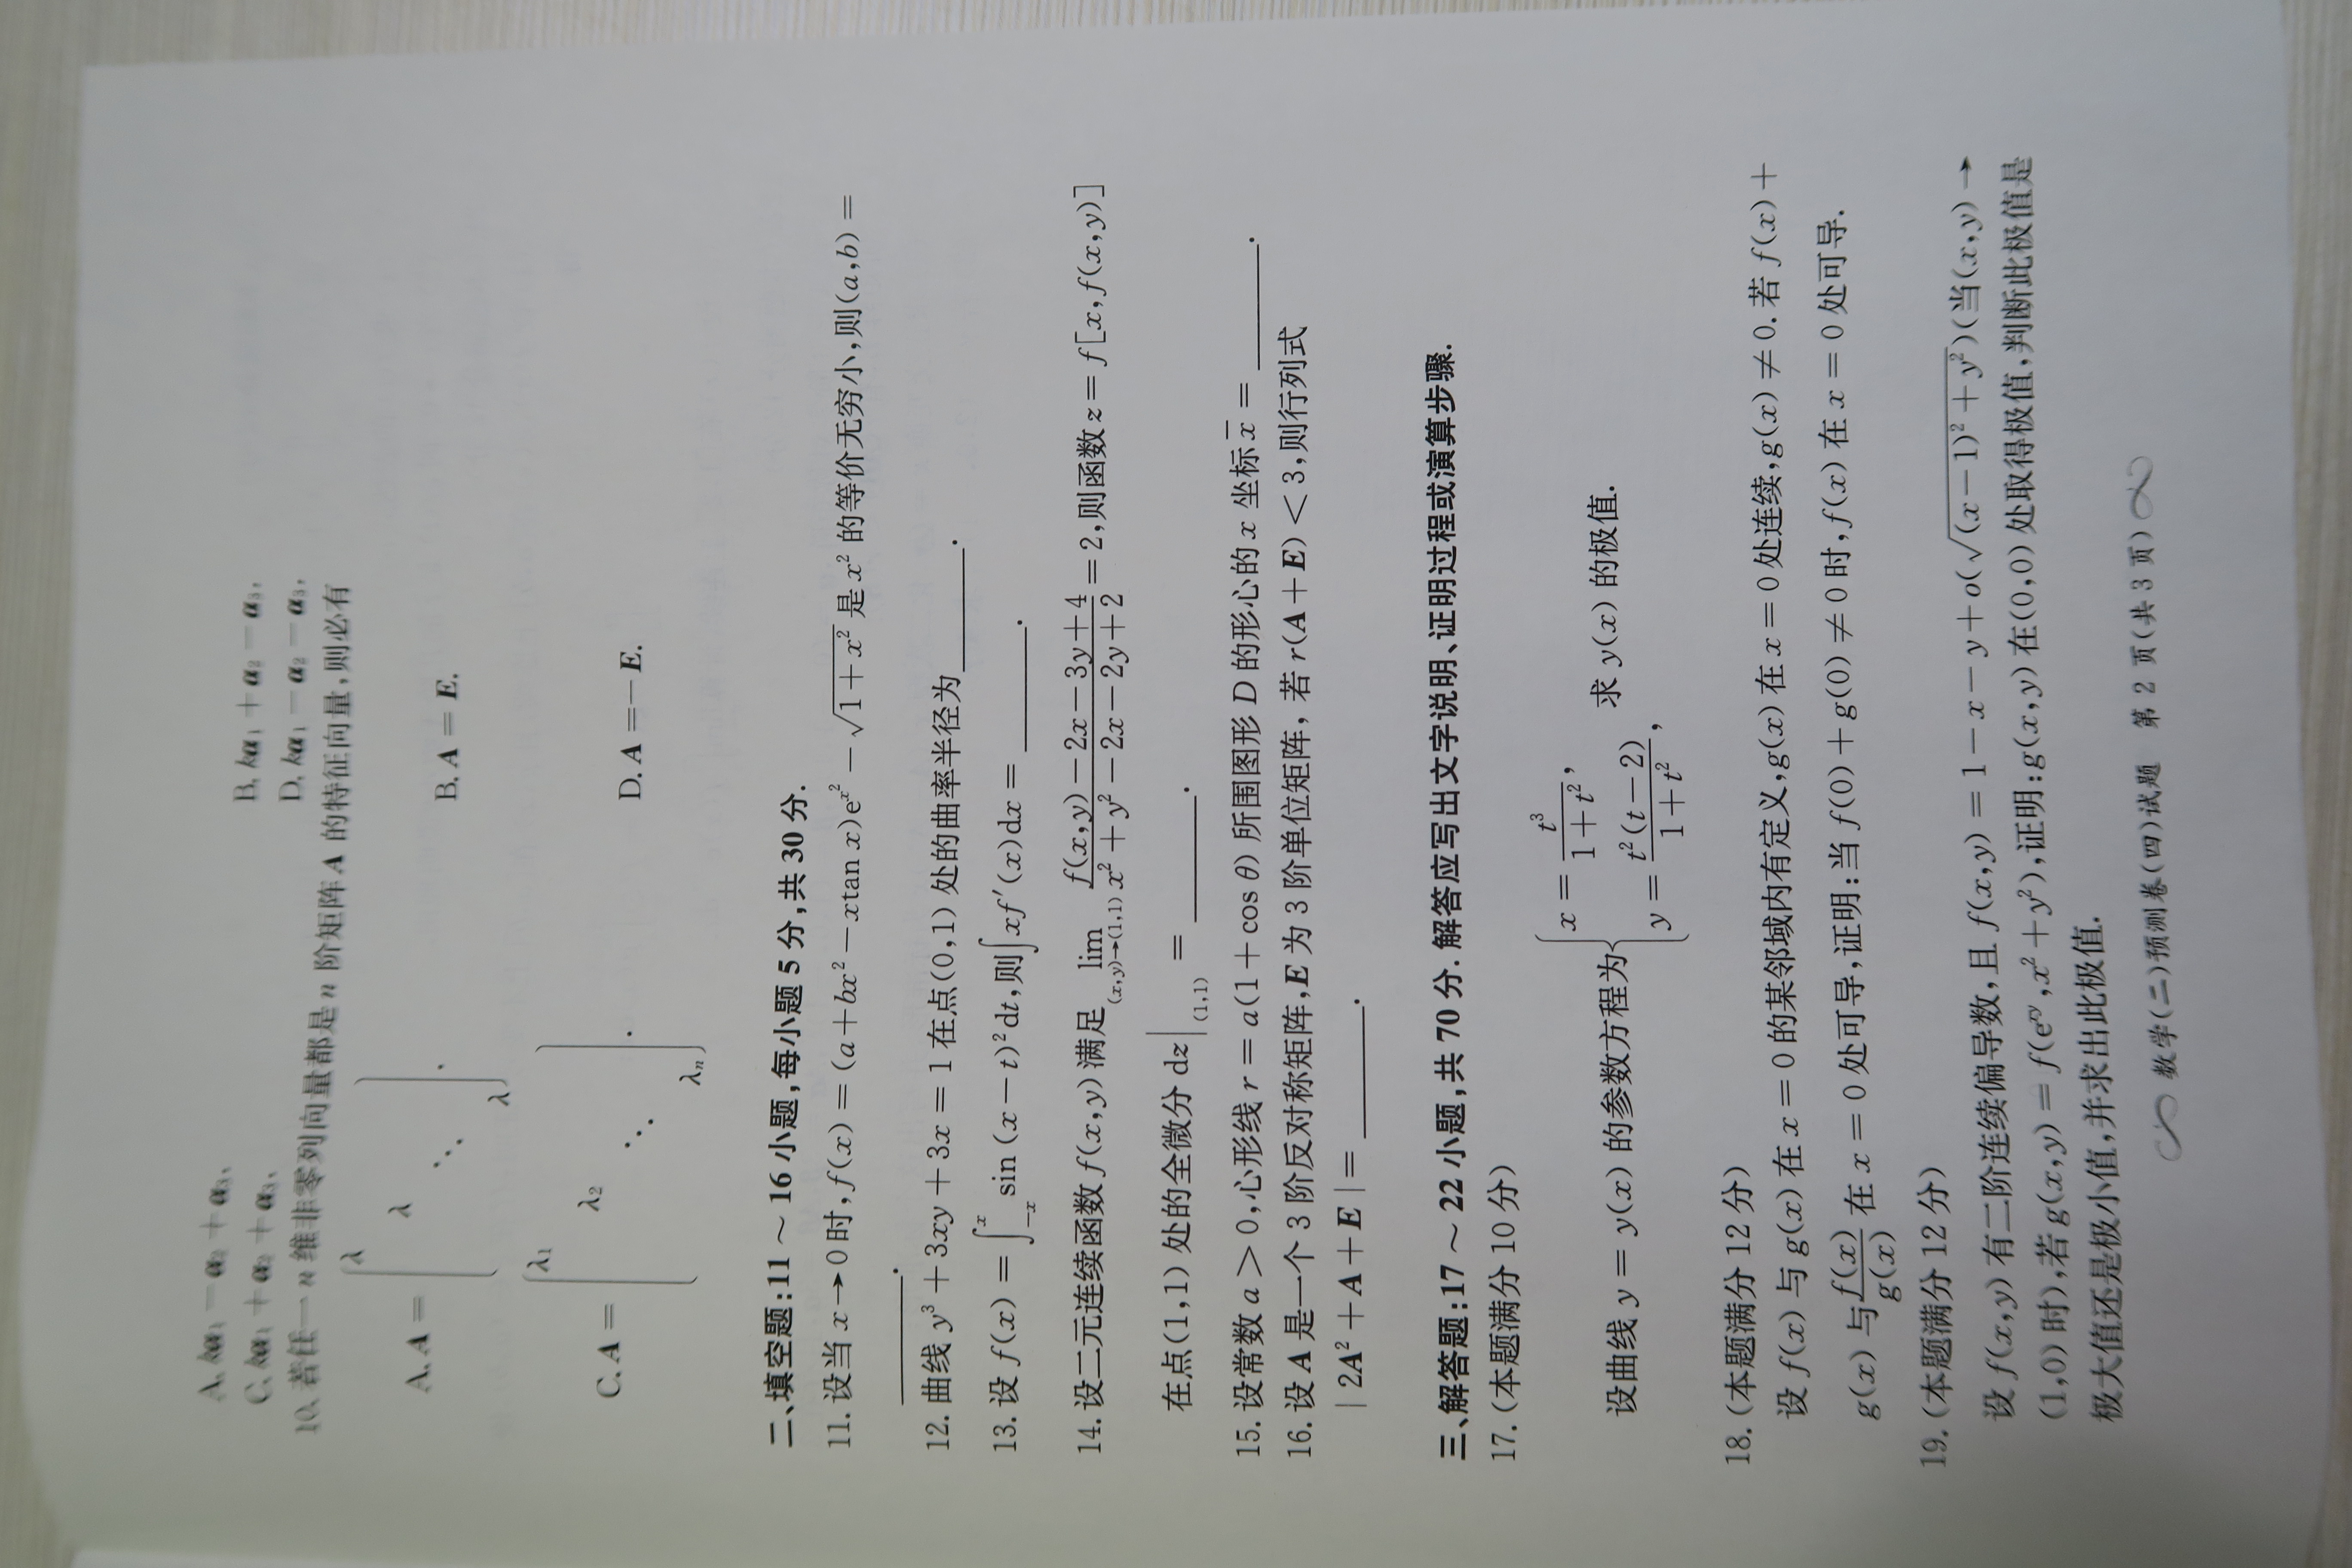 A. kα₁ − α₂ + α₃.
B. kα₁ + α₂ − α₃.
C. kα₁ + α₂ + α₃.
D. kα₁ − α₂ − α₃.
10. 若任一 n 维非零列向量都是 n 阶矩阵 A 的特征向量,则必有
A. A = [λ λ ⋱ λ].
B. A = E.
C. A = [λ₁ λ₂ ⋱ λₙ].
D. A = − E.
二、填空题:11 ~ 16 小题,每小题 5 分,共 30 分.
11. 设当 x → 0 时, f(x) = (a + bx² − xtan x)e^{x²} − √(1 + x²) 是 x² 的等价无穷小,则(a,b) =
______.
12. 曲线 y³ + 3xy + 3x = 1 在点(0,1) 处的曲率半径为______.
13. 设 f(x) = ∫_{−x}^{x} sin (x − t)² dt,则∫xf′(x)dx = ______.
14. 设二元连续函数 f(x,y) 满足 lim_{(x,y)→(1,1)} (f(x,y) − 2x − 3y + 4)/(x² + y² − 2x − 2y + 2) = 2,则函数 z = f[x,f(x,y)]
在点(1,1) 处的全微分 dz|_{(1,1)} = ______.
15. 设常数 a > 0,心形线 r = a(1 + cos θ) 所围图形 D 的形心的 x 坐标 x̄ = ______.
16. 设 A 是一个 3 阶反对称矩阵,E 为 3 阶单位矩阵, 若 r(A + E) < 3,则行列式
| 2A² + A + E | = ______.
三、解答题:17 ~ 22 小题,共 70 分. 解答应写出文字说明、证明过程或演算步骤.
17. (本题满分 10 分)
设曲线 y = y(x) 的参数方程为 { x = t³/(1 + t²), y = t²(t − 2)/(1 + t²), 求 y(x) 的极值.
18. (本题满分 12 分)
设 f(x) 与 g(x) 在 x = 0 的某邻域内有定义,g(x) 在 x = 0 处连续,g(x) ≠ 0. 若 f(x) +
g(x) 与 f(x)/g(x) 在 x = 0 处可导,证明:当 f(0) + g(0) ≠ 0 时,f(x) 在 x = 0 处可导.
19. (本题满分 12 分)
设 f(x,y) 有二阶连续偏导数,且 f(x,y) = 1 − x − y + o(√((x − 1)² + y²)) (当(x,y) →
(1,0) 时),若 g(x,y) = f(e^{xy},x² + y²),证明:g(x,y) 在(0,0) 处取得极值,判断此极值是
极大值还是极小值,并求出此极值.
数学(二)预测卷(四)试题 第 2 页(共 3 页)